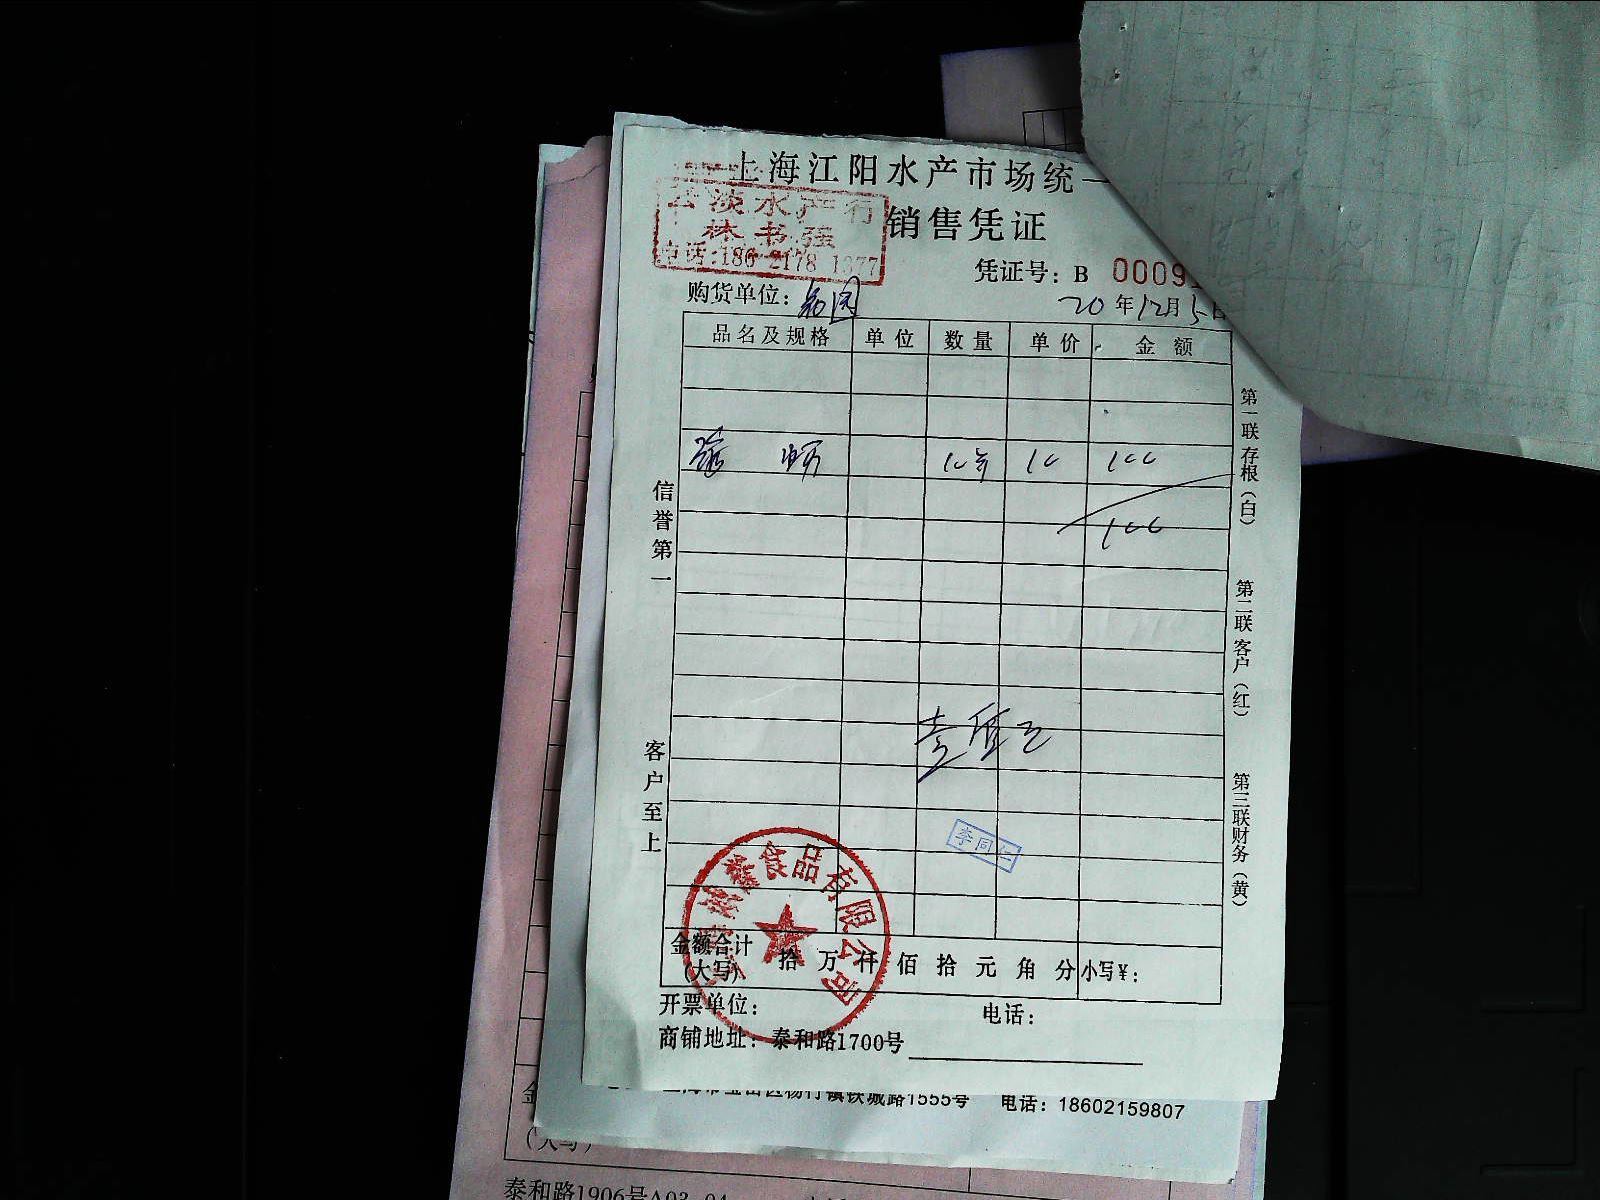 上海江阳水产市场统一
销售凭证
淡水产行
林书强
电话:186 2178 1377
凭证号: B 0009
购货单位:
20年12月5日
品名及规格 单位 数量 单价 金额
10斤 10 100
100
信誉第一
客户至上
第一联存根(白)
第二联客户(红)
第三联财务(黄)
壹佰元
李同仁
食品有限公司
金额合计(大写) 拾 万 仟 佰 拾 元 角 分 小写¥:
开票单位: 电话:
商铺地址: 泰和路1700号
路1555号 电话: 18602159807
(大写)
泰和路1906号A03